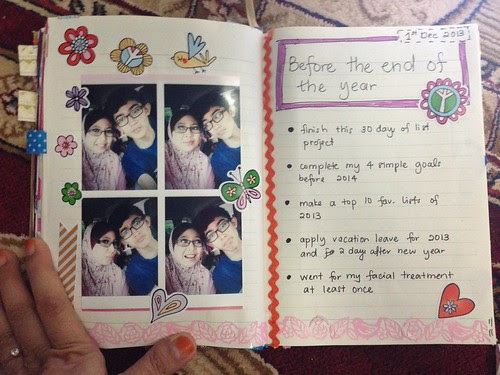 1st Dec 2013
Before the end of
the year
finish this 30 day of list
project
complete my 4 simple goals
before 2014
make a top 10 fav. lists of
2013
apply vacation leave for 2013
and 2 day after new year
went for my facial treatment
at least once